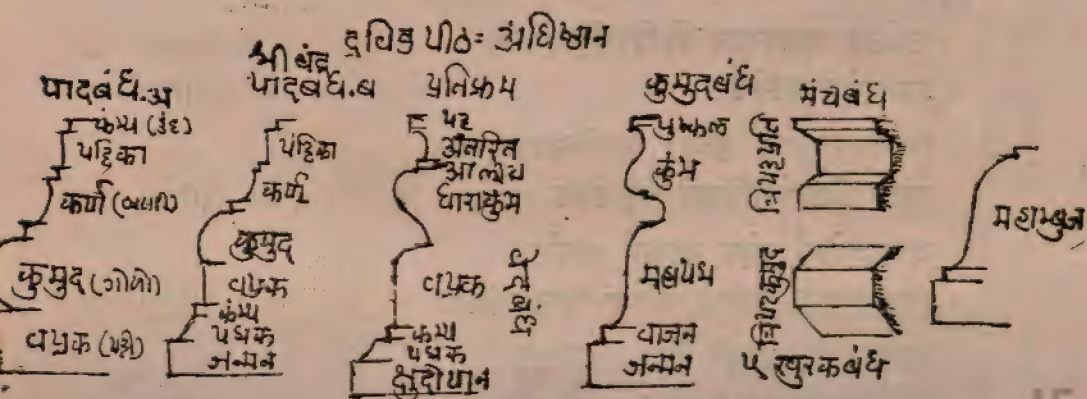 द्रविड पीठ= अधिष्ठान
पादबंध.अ
कंम्प (कंद)
पट्टिका
कर्ण
कुमुद (गोळो)
वप्रक
श्री बंद्र
पादबंध.ब
पट्टिका
कर्ण
कुमुद
वप्रक
कंम्प
पद्मक
जन्मन
प्रतिक्रम
पट
अंतरित
आलींग
धाराकुंभ
वप्रक
कम्प
पद्मक
क्षुद्रोपान
कुमुदबंध
पुष्कल
कुंभ
महापद्म
वाजन
जन्मन
मंचबंध
त्रिपट्टि
त्रिपटकुमुद
खुरकबंध
महाम्बुज